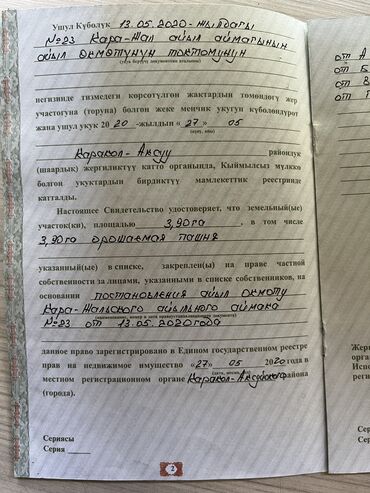 Ушул Күбөлүк 13.05.2020-жылдагы
№23 Кара-Жал айыл аймагынын
айыл өкмөтүнүн токтомунун
(укук берүүчү документтин аталышы)
негизинде тизмедеги көрсөтүлгөн жактардын төмөндөгү жер
участогуна (торуна) болгон жеке менчик укугун күбөлөндүрөт
жана ушул укук 2020 -жылдын « 27 » 05
(күнү, айы)
Каракол-Аксуу райондук
(шаардык) жергиликтүү катто органында, Кыймылсыз мүлккө
болгон укуктардын бирдиктүү мамлекеттик реестринде
катталды.
Настоящее Свидетельство удостоверяет, что земельный(ые)
участок(ки), площадью 3,90га, в том числе
3,90га орошаемая пашня
указанный(ые) в списке, закреплен(ы) на праве частной
собственности за лицами, указанными в списке собственников, на
основании постановления айыл өкмөту
Кара-Жальского айыльного аймака
№23 от 13.05.2020года
данное право зарегистрировано в Едином государственном реестре
прав на недвижимое имущество «27» 05 2020 года в
местном регистрационном органе Каракол-Аксуйского района
(города).
Сериясы
Серия
2
от А
от Б
от В
от Г